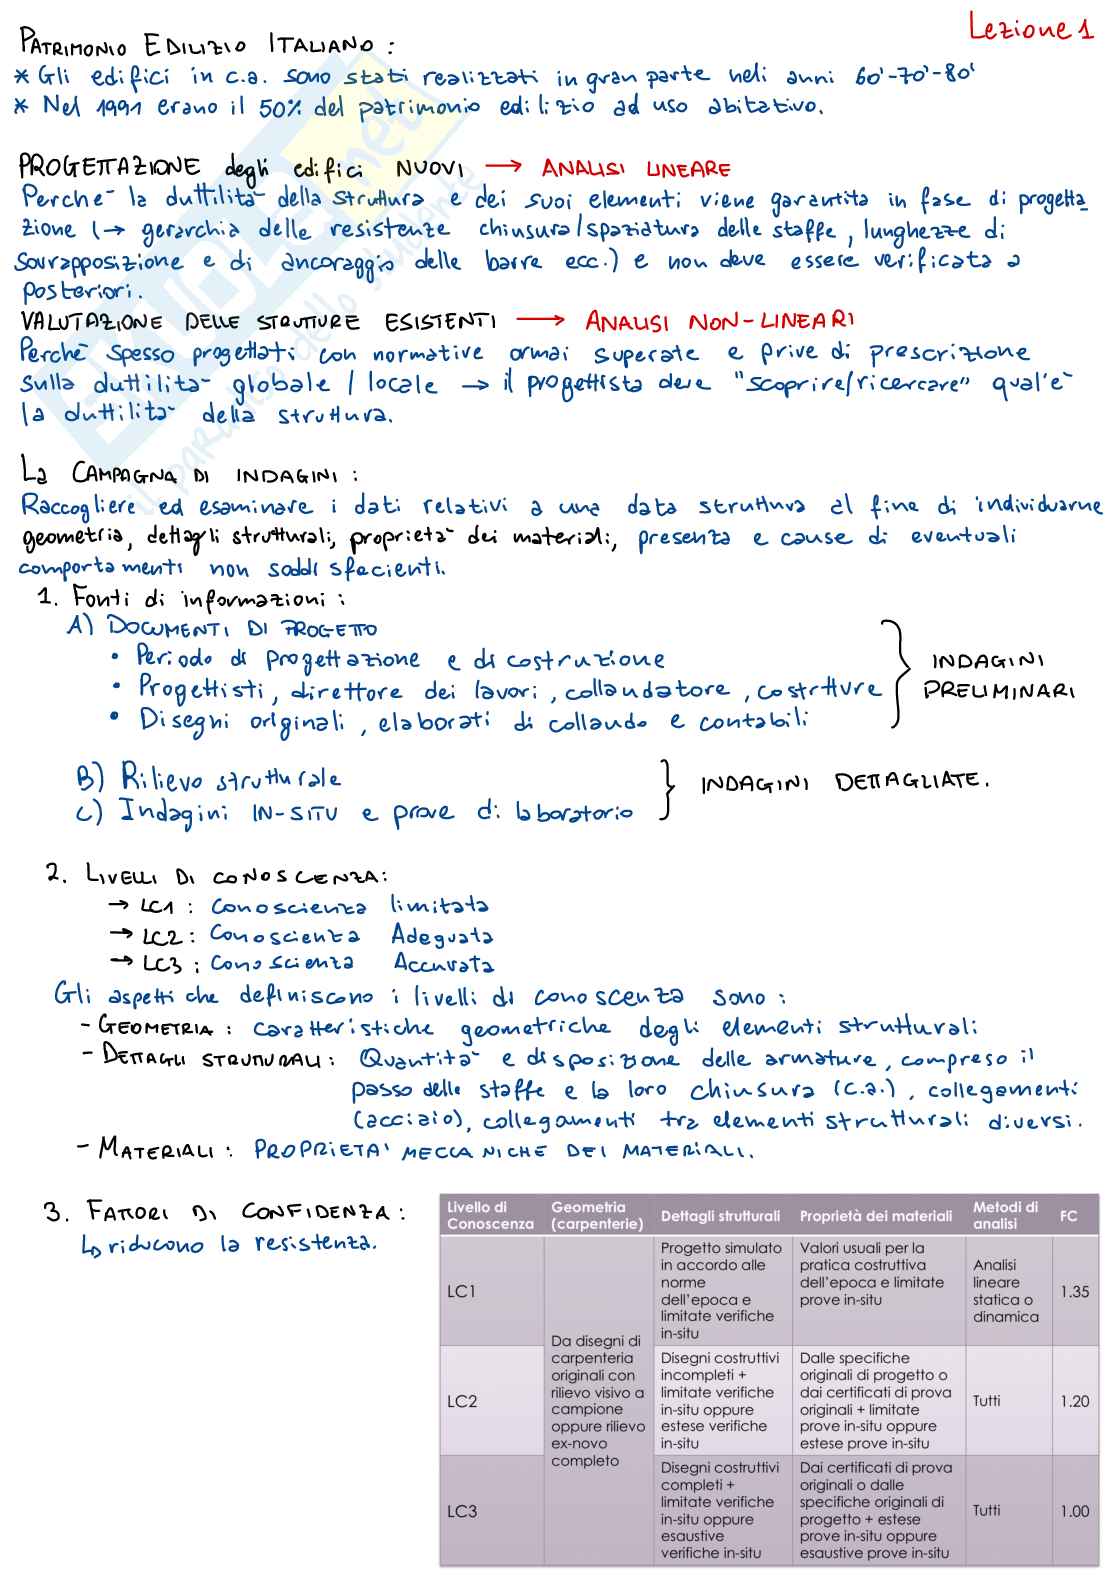 Lezione 1
PATRIMONIO EDILIZIO ITALIANO :
* Gli edifici in c.a. sono stati realizzati in gran parte neli anni 60'-70'-80'
* Nel 1991 erano il 50% del patrimonio edilizio ad uso abitativo.
PROGETTAZIONE degli edifici NUOVI → ANALISI LINEARE
Perchè la duttilità della struttura e dei suoi elementi viene garantita in fase di progetta
zione (→ gerarchia delle resistenze chiusura/spaziatura delle staffe, lunghezze di
Sovrapposizione e di ancoraggio delle barre ecc.) e non deve essere verificata a
posteriori.
VALUTAZIONE DELLE STRUTTURE ESISTENTI → ANALISI NON-LINEARI
Perchè spesso progettati con normative ormai superate e prive di prescrizione
sulla duttilità globale / locale → il progettista deve "scoprire/ricercare" qual'è
la duttilità della struttura.
La CAMPAGNA DI INDAGINI :
Raccogliere ed esaminare i dati relativi a una data struttura al fine di individuarne
geometria, dettagli strutturali, proprietà dei materiali, presenza e cause di eventuali
comportamenti non soddisfacienti.
1. Fonti di informazioni :
A) DOCUMENTI DI PROGETTO
• Periodo di progettazione e di costruzione
• Progettisti, direttore dei lavori, collaudatore, costrttore
• Disegni originali, elaborati di collaudo e contabili
INDAGINI
PRELIMINARI
B) Rilievo strutturale
C) Indagini IN-SITU e prove di laboratorio
INDAGINI DETTAGLIATE.
2. LIVELLI DI CONOSCENZA:
→ LC1 : Conoscienza limitata
→ LC2 : Conoscienza Adeguata
→ LC3 : Conoscienza Accurata
Gli aspetti che definiscono i livelli di conoscenza sono :
- GEOMETRIA : caratteristiche geometriche degli elementi strutturali
- DETTAGLI STRUTTURALI : Quantità e disposizione delle armature, compreso il
passo delle staffe e la loro chiusura (c.a.), collegamenti
(acciaio), collegamenti tra elementi strutturali diversi.
- MATERIALI : PROPRIETA' MECCANICHE DEI MATERIALI.
3. FATTORI DI CONFIDENZA :
↳ riducono la resistenza.
Livello di Conoscenza
Geometria (carpenterie)
Dettagli strutturali
Proprietà dei materiali
Metodi di analisi
FC
LC1
Da disegni di
carpenteria
originali con
rilievo visivo a
campione
oppure rilievo
ex-novo
completo
Progetto simulato
in accordo alle
norme
dell'epoca e
limitate verifiche
in-situ
Valori usuali per la
pratica costruttiva
dell'epoca e limitate
prove in-situ
Analisi
lineare
statica o
dinamica
1.35
LC2
Disegni costruttivi
incompleti +
limitate verifiche
in-situ oppure
estese verifiche
in-situ
Dalle specifiche
originali di progetto o
dai certificati di prova
originali + limitate
prove in-situ oppure
estese prove in-situ
Tutti
1.20
LC3
Disegni costruttivi
completi +
limitate verifiche
in-situ oppure
esaustive
verifiche in-situ
Dai certificati di prova
originali o dalle
specifiche originali di
progetto + estese
prove in-situ oppure
esaustive prove in-situ
Tutti
1.00
SKUOLA.net
il paradiso dello studente